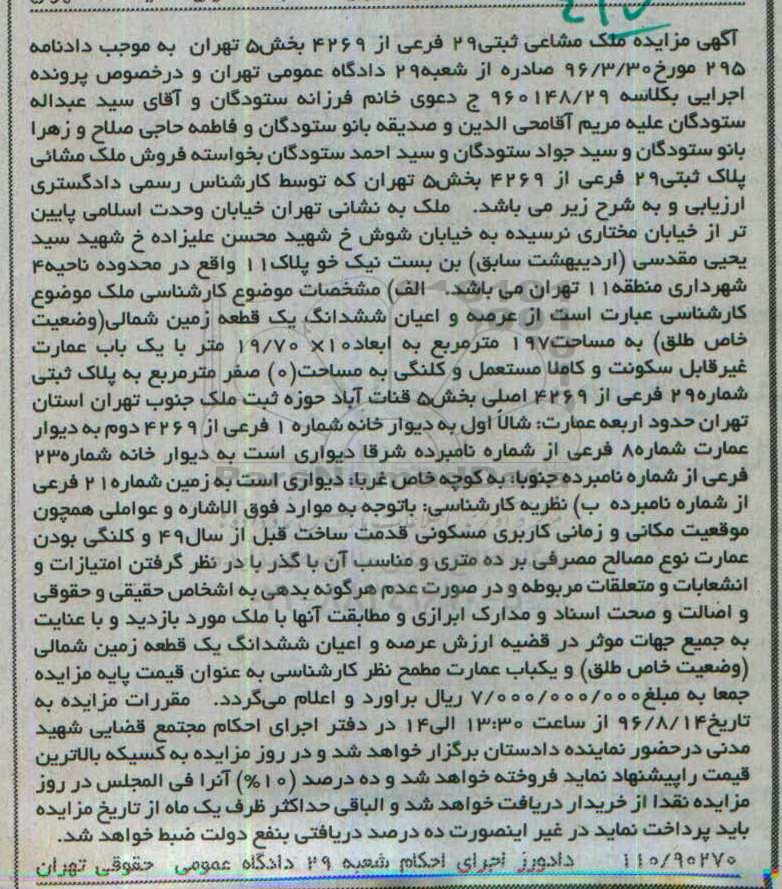 آگهی مزایده ملک مشاعی ثبتی۲۹ فرعی از ۴۲۶۹ بخش۵ تهران به موجب دادنامه
۲۹۵ مورخ۹۶/۳/۳۰ صادره از شعبه۲۹ دادگاه عمومی تهران و درخصوص پرونده
اجرایی بکلاسه ۹۶۰۱۴۸/۲۹ ج دعوی خانم فرزانه ستودگان و آقای سید عبداله
ستودگان علیه مریم آقامحی الدین و صدیقه بانو ستودگان و فاطمه حاجی صلاح و زهرا
بانو ستودگان و سید جواد ستودگان و سید احمد ستودگان بخواسته فروش ملک مشائی
پلاک ثبتی۲۹ فرعی از ۴۲۶۹ بخش۵ تهران که توسط کارشناس رسمی دادگستری
ارزیابی و به شرح زیر می باشد. ملک به نشانی تهران خیابان وحدت اسلامی پایین
تر از خیابان مختاری نرسیده به خیابان شوش خ شهید محسن علیزاده خ شهید سید
یحیی مقدسی (اردیبهشت سابق) بن بست نیک خو پلاک۱۱ واقع در محدوده ناحیه۴
شهرداری منطقه۱۱ تهران می باشد. الف) مشخصات موضوع کارشناسی ملک موضوع
کارشناسی عبارت است از عرصه و اعیان ششدانگ یک قطعه زمین شمالی(وضعیت
خاص طلق) به مساحت۱۹۷ مترمربع به ابعاد۱۰× ۱۹/۷۰ متر با یک باب عمارت
غیرقابل سکونت و کاملا مستعمل و کلنگی به مساحت(۰) صفر مترمربع به پلاک ثبتی
شماره۲۹ فرعی از ۴۲۶۹ اصلی بخش۵ قنات آباد حوزه ثبت ملک جنوب تهران استان
تهران حدود اربعه عمارت: شالاً اول به دیوار خانه شماره ۱ فرعی از ۴۲۶۹ دوم به دیوار
عمارت شماره۸ فرعی از شماره نامبرده شرقا دیواری است به دیوار خانه شماره۲۳
فرعی از شماره نامبرده جنوبا: به کوچه خاص غربا: دیواری است به زمین شماره۲۱ فرعی
از شماره نامبرده ب) نظریه کارشناسی: باتوجه به موارد فوق الاشاره و عواملی همچون
موقعیت مکانی و زمانی کاربری مسکونی قدمت ساخت قبل از سال۴۹ و کلنگی بودن
عمارت نوع مصالح مصرفی بر ده متری و مناسب آن با گذر با در نظر گرفتن امتیازات و
انشعابات و متعلقات مربوطه و در صورت عدم هرگونه بدهی به اشخاص حقیقی و حقوقی
و اصالت و صحت اسناد و مدارک ابرازی و مطابقت آنها با ملک مورد بازدید و با عنایت
به جمیع جهات موثر در قضیه ارزش عرصه و اعیان ششدانگ یک قطعه زمین شمالی
(وضعیت خاص طلق) و یکباب عمارت مطمح نظر کارشناسی به عنوان قیمت پایه مزایده
جمعا به مبلغ۷/۰۰۰/۰۰۰/۰۰۰ ریال براورد و اعلام می‌گردد. مقررات مزایده به
تاریخ۹۶/۸/۱۴ از ساعت ۱۳:۳۰ الی۱۴ در دفتر اجرای احکام مجتمع قضایی شهید
مدنی درحضور نماینده دادستان برگزار خواهد شد و در روز مزایده به کسیکه بالاترین
قیمت راپیشنهاد نماید فروخته خواهد شد و ده درصد (۱۰%) آنرا فی المجلس در روز
مزایده نقدا از خریدار دریافت خواهد شد و الباقی حداکثر ظرف یک ماه از تاریخ مزایده
باید پرداخت نماید در غیر اینصورت ده درصد دریافتی بنفع دولت ضبط خواهد شد.
۱۱۰/۹۰۲۷۰ دادورز اجرای احکام شعبه ۲۹ دادگاه عمومی حقوقی تهران